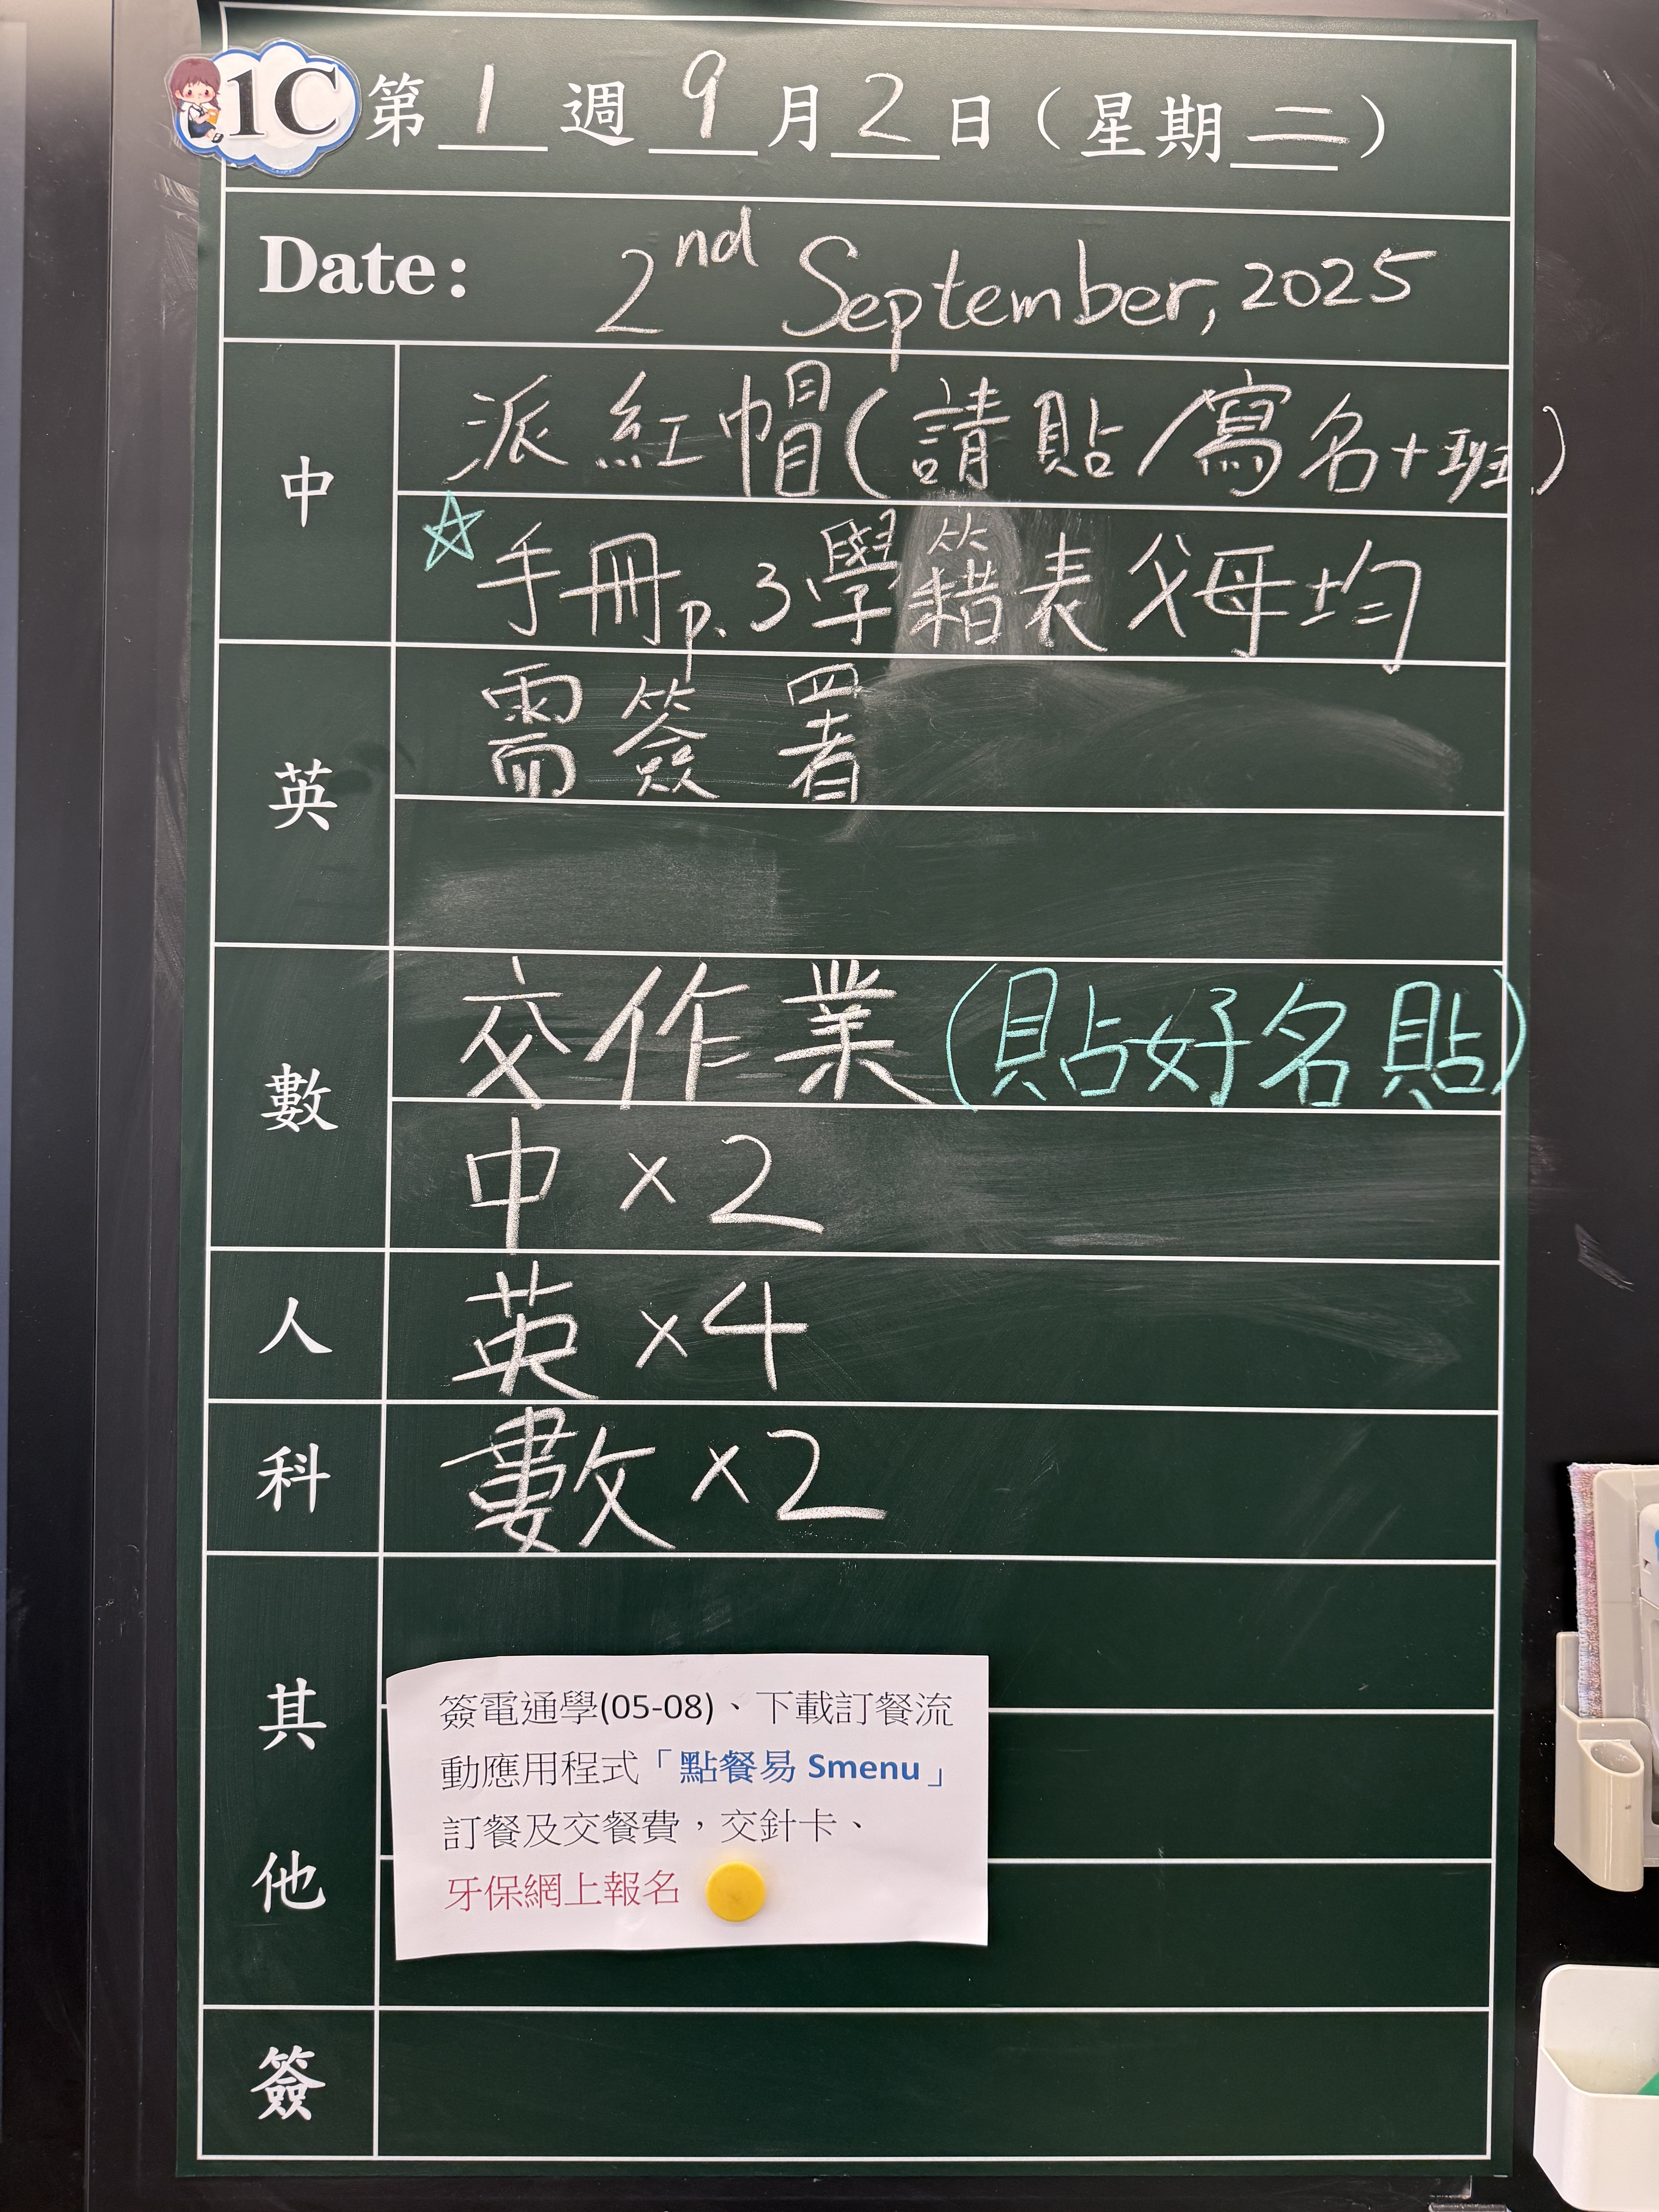 1C 第 1 週 9 月 2 日（星期二）
Date: 2nd September, 2025
中
派紅帽(請貼/寫名+班)
☆手冊p.3學籍表父母均
英
需簽署
數
交作業(貼好名貼)
中×2
人
英×4
科
數×2
其他
簽電通學(05-08)、下載訂餐流
動應用程式「點餐易 Smenu」
訂餐及交餐費，交針卡、
牙保網上報名
簽